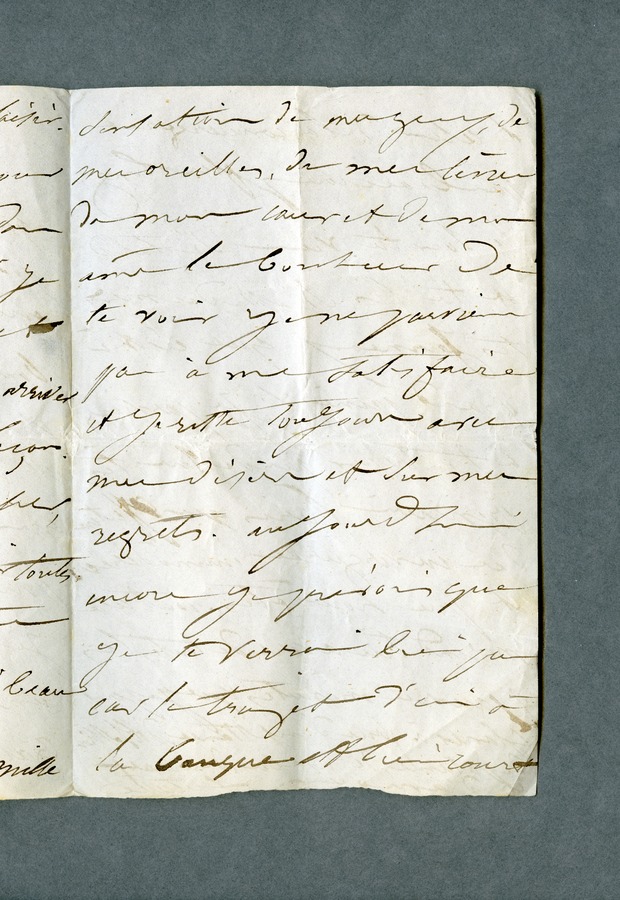 de mes yeux, de
mes oreilles, de mes lèvres
de mon cœur et de mon
âme le bonheur de
te voir je ne parviens
pas à me satisfaire
et je reste toujours avec
mes désirs et sur mes
regrets. aujourd'hui
encore je prévois que
je te verrai bien peu
car le trajet d'ici à
la banque est bien court
je
arriver
toutes
beau
mille